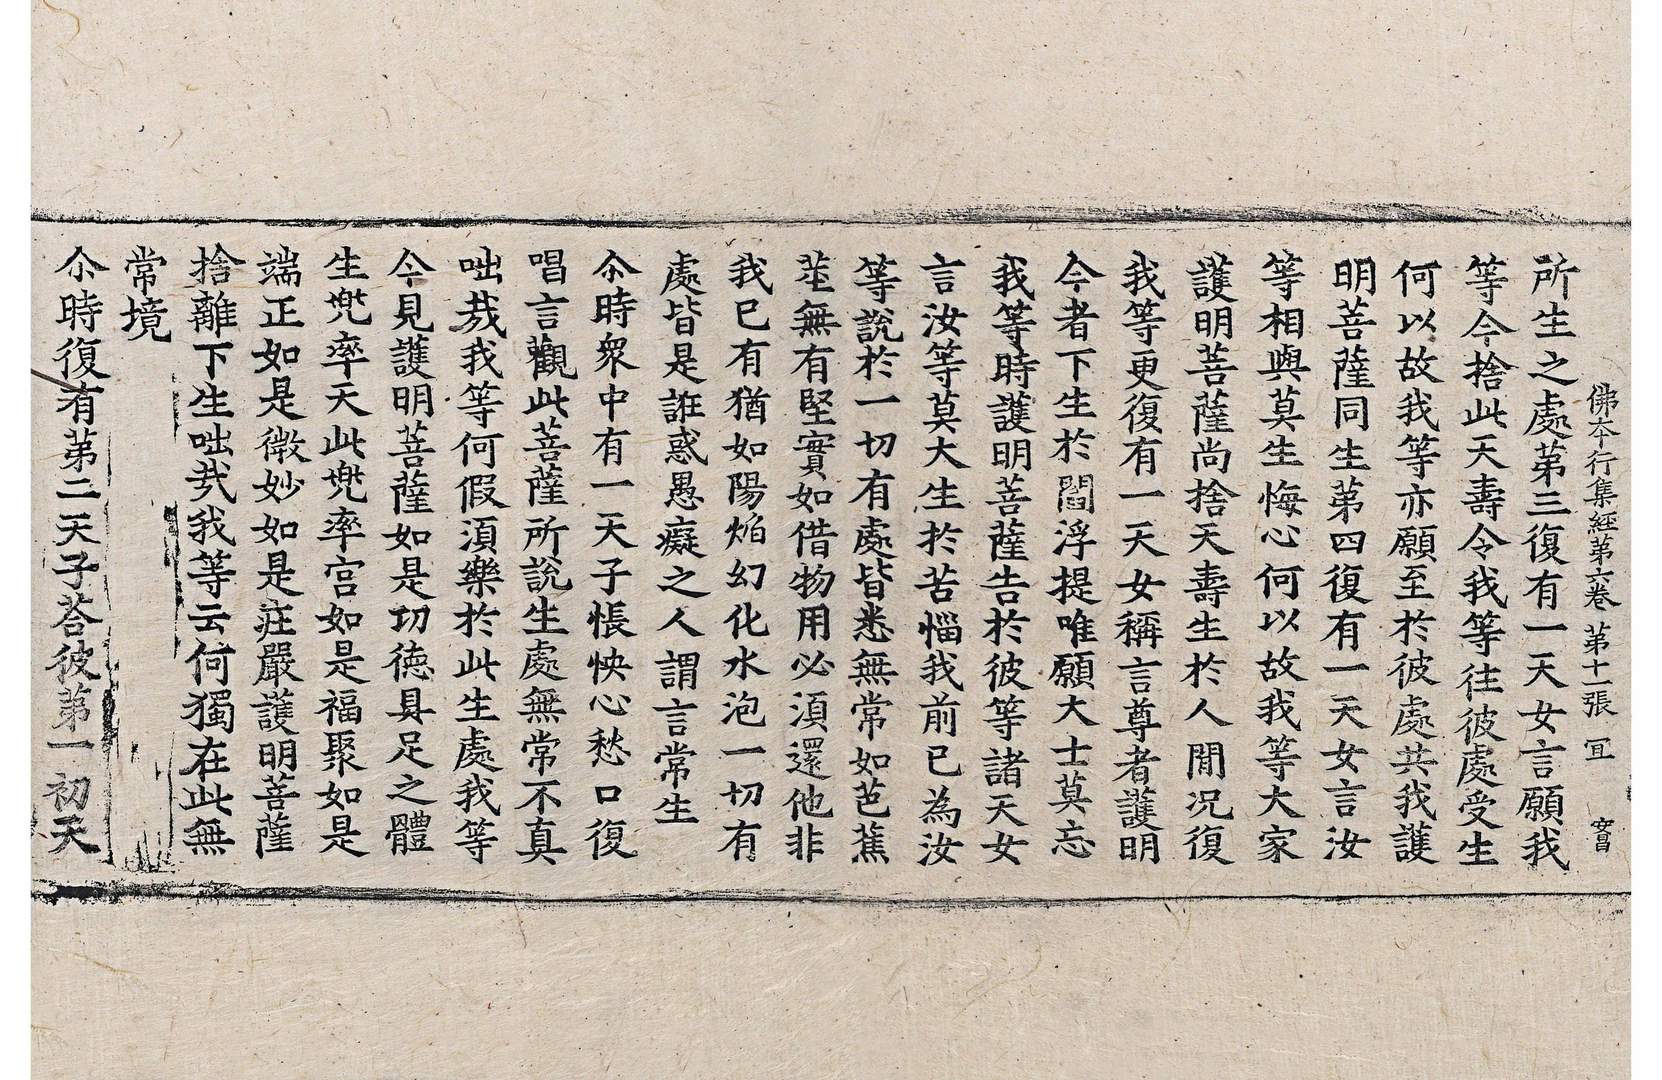 佛夲行集經第六卷 第十一張 冝
所生之處第三復有一天女言願我
等今捨此天壽令我等往彼處受生
何以故我等亦願至於彼處共我護
明菩薩同生第四復有一天女言汝
等相與莫生悔心何以故我等大家
護明菩薩尚捨天壽生於人閒況復
我等更復有一天女稱言尊者護明
今者下生於閻浮提唯願大士莫忘
我等時護明菩薩告於彼等諸天女
言汝等莫大生於苦惱我前已為汝
等說於一切有處皆悉無常如芭蕉
莖無有堅實如借物用必須還他非
我已有猶如陽焰幻化水泡一切有
處皆是誑惑愚癡之人謂言常生
尒時衆中有一天子悵怏心愁口復
唱言觀此菩薩所說生處無常不真
咄𢦏我等何假須樂於此生處我等
今見護明菩薩如是功徳具足之體
生兜率天此兜率宮如是福聚如是
端正如是微妙如是莊嚴護明菩薩
捨離下生咄哉我等云何獨在此無
常境
尒時復有第二天子荅彼第一初天